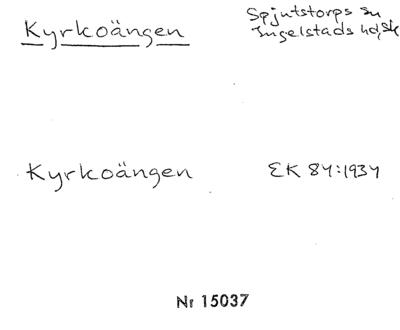 Kyrkoängen
Spjutstorps sn
Ingelstads hd, Sk
Kyrkoängen
EK 84:1934
Nr 15037